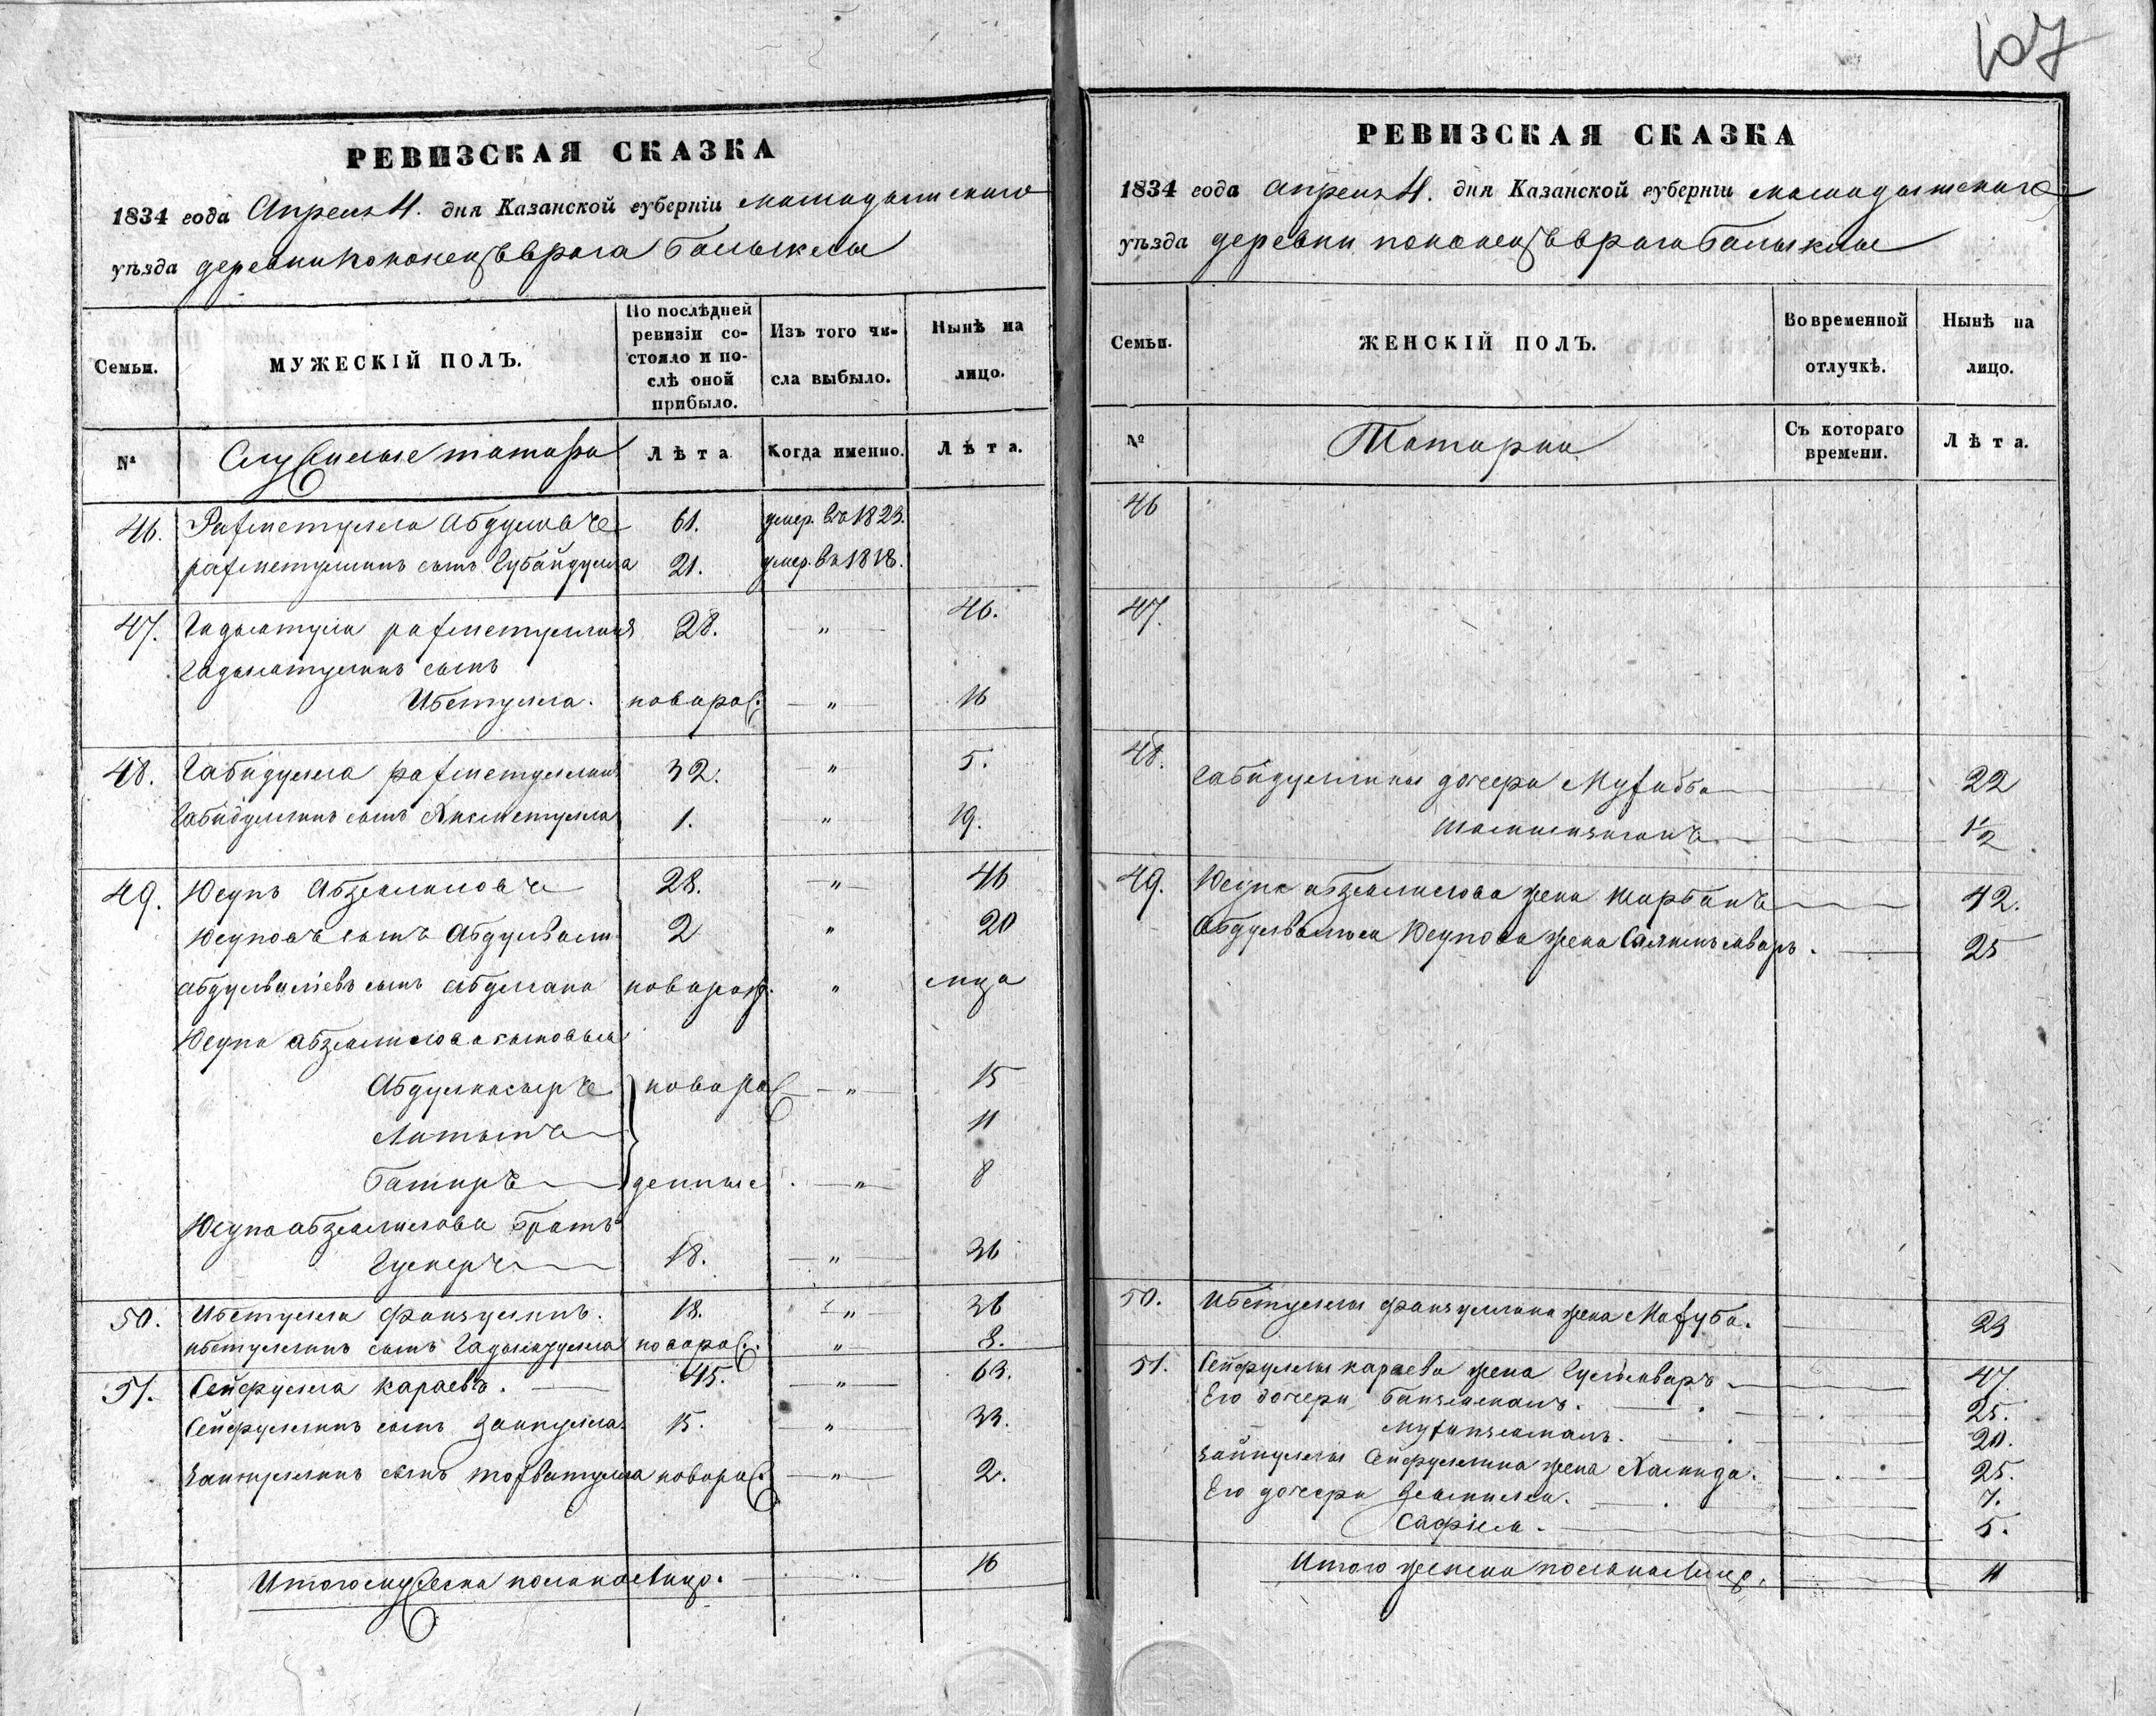 107
РЕВИЗСКАЯ СКАЗКА
1834 года Апреля 4. дня Казанской губерніи мамадышскаго
уѣзда деревни Балыклы
Семьи.
МУЖЕСКІЙ ПОЛЪ.
По послѣдней ревизіи состояло и послѣ оной прибыло.
Изъ того числа выбыло.
Нынѣ на лицо.
№
Служилые татара
Лѣта
Когда именно.
Лѣта.
46. Рахметулла Абдуловъ 61. умер. въ 1823.
рахметуллинъ сынъ Губайдулла 21. умер. въ 1818.
47. рахметуллинъ 28. — „ — 46.
сынъ
Ибетулла. новорож: — „ — 16
48. Габидулла рахметуллинъ 32. — „ — 5.
Габидуллинъ сынъ Хикметулла 1. — „ — 19.
49. Юсупъ Абзелиловъ 28. — „ — 46
Юсуповъ сынъ Абдулвали 2 „ 20
абдулваліевъ сынъ новорож. „
Юсупа абзелилова сыновья
Абдулнасыръ } новорож — „ — 15
Латыпъ 11
Батиръ денные . — „ — 8
Юсупа абзелилова братъ
18. — „ — 36
50. Ибетулла фаизулинъ. 18. „ 36
ибетуллинъ сынъ новорож. „ 8.
51. Сейфулла караевъ. 45. — „ — 63.
Сейфуллинъ сынъ Зайнулла 15. — „ — 33.
Зайнуллинъ сынъ новорож: — „ — 2.
Итого мужеска пола на лицо. 16
РЕВИЗСКАЯ СКАЗКА
1834 года апреля 4. дня Казанской губерніи мамадышскаго
уѣзда деревни Балыклы
Семьи.
ЖЕНСКІЙ ПОЛЪ.
Во временной отлучкѣ.
Нынѣ на лицо.
№
Татарки
Съ котораго времени.
Лѣта.
46
47.
48.
Габидуллины дочери 22
1½
49. Юсупа абзелилова жена Марбанъ 42.
Абдулвалія Юсупова жена 25
50. Ибетуллы фаизуллина жена Махуба. 23
51. Сейфуллы караева жена 47.
Его дочери 25.
20.
Зайнуллы Сейфуллина жена Хамида. 25.
Его дочери 7.
Сафія. 5.
Итого женска пола на лицо. 11